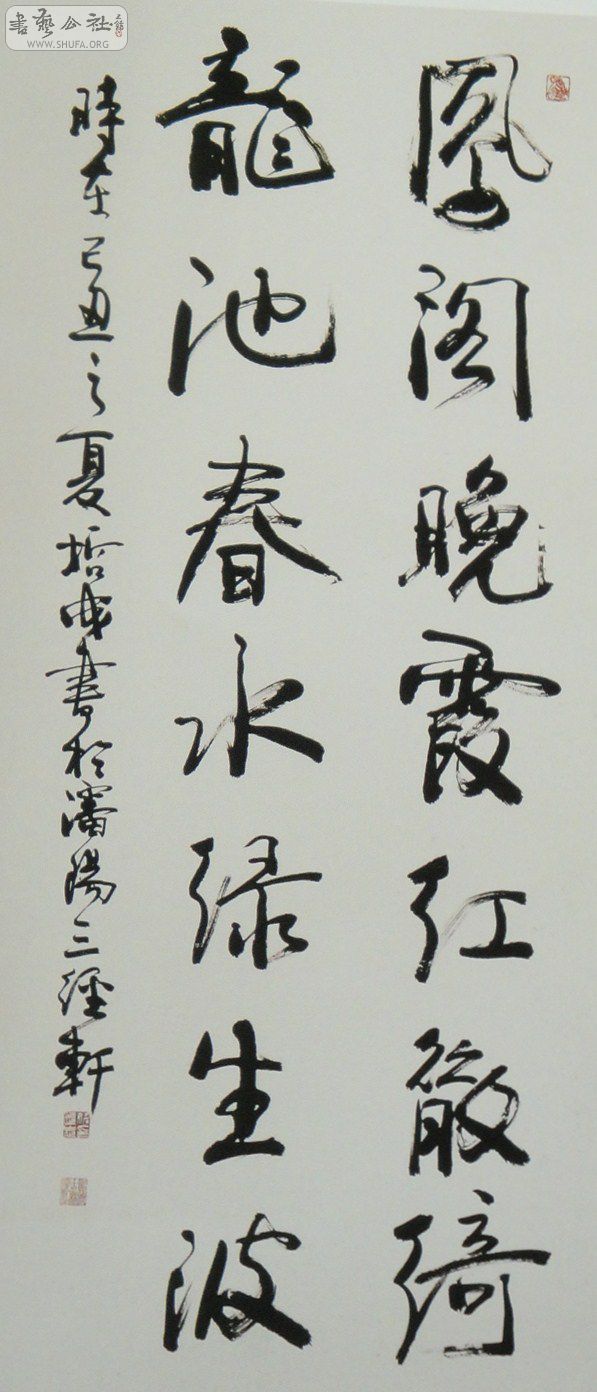 書藝公社
WWW.SHUFA.ORG
鳳阁晚霞红散绮
龍池春水绿生波
時在己丑之夏成書於瀋陽三經軒